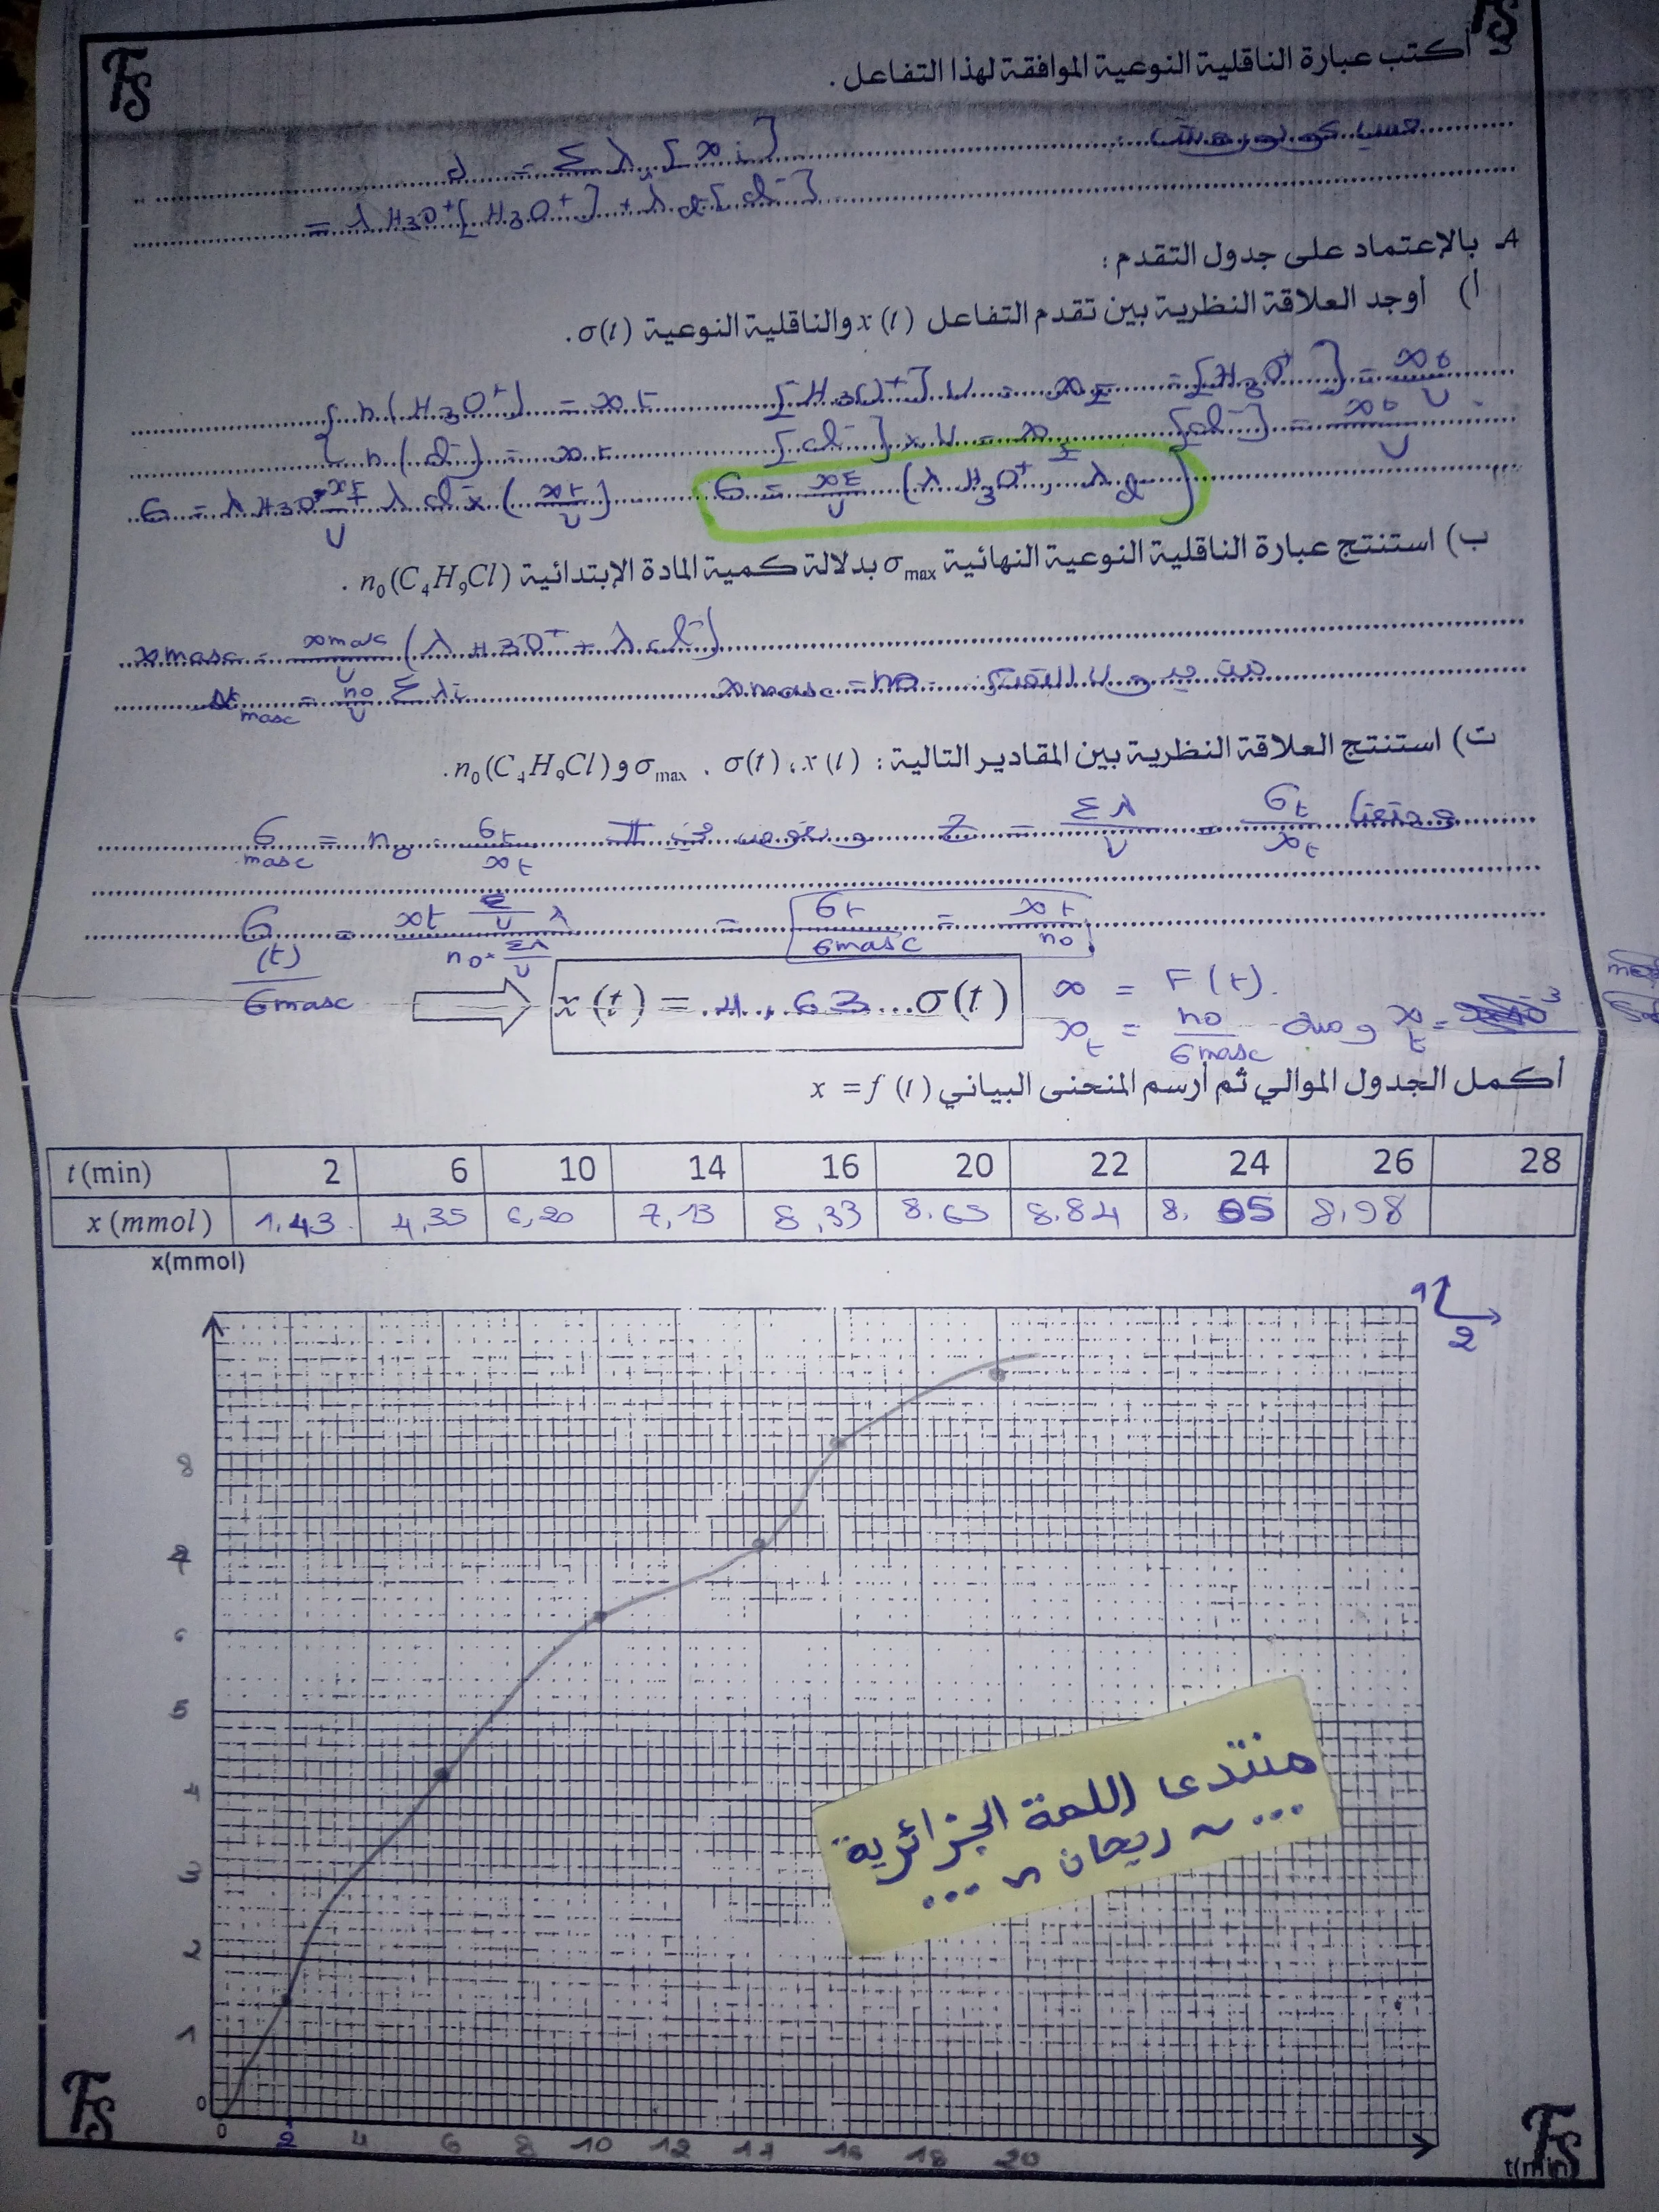 FS
FS
3- أكتب عبارة الناقلية النوعية الموافقة لهذا التفاعل .
حسب كولوروش :
σ = Σ λ [xi]
= λ H3O+ [H3O+] + λ cl- [cl-]
4. بالإعتماد على جدول التقدم :
أ) أوجد العلاقة النظرية بين تقدم التفاعل x (t) والناقلية النوعية σ(t) .
n (H3O+) = xt [H3O+] V = xt = [H3O+] = xt/V
n (cl-) = xt [cl-] x V = xt [cl-] = xt/V
σ = λ H3O+ xt/V + λ cl- x (xt/V) σ = xt/V (λ H3O+ + λ cl-)
ب) استنتج عبارة الناقلية النوعية النهائية σmax بدلالة كمية المادة الإبتدائية n0(C4H9Cl) .
xmasc = xmasc/V (λ H3O+ + λ cl-)
σmasc = n0/V Σ λi xmasc = n0 من جدول التقدم
ت) استنتج العلاقة النظرية بين المقادير التالية : x (t) ، σ(t) ، σmax و n0(C4H9Cl) .
σmasc = n0 . σt/xt Σλ/V = σt/xt
σ(t)/σmasc = xt Σ/V λ / n0 . Σλ/V = σt/σmasc = xt/n0
x (t) = 4,63 σ(t)
x = F (t).
xt = n0/σmasc
أكمل الجدول الموالي ثم أرسم المنحنى البياني x = f (t)
t (min) 2 6 10 14 16 20 22 24 26 28
x (mmol) 1,43 4,35 6,20 7,13 8,33 8.65 8.84 8,98
x(mmol)
1
2
8
7
6
5
4
3
2
1
0
0 2 4 6 8 10 12 14 16 18 20
t(min)
منتدى اللمة الجزائرية
... ~ ريحان ~ ...
FS
FS